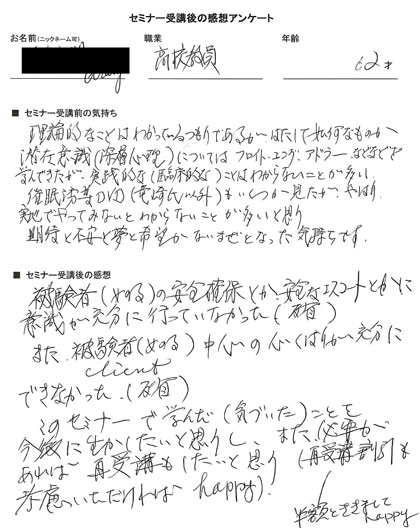 セミナー受講後の感想アンケート
お名前(ニックネーム可) 職業 年齢
高校教員 62才
■ セミナー受講前の気持ち
理論的なことはわかっているつもりであるが はたして
潜在意識(深層心理)についてはフロイト、ユング、アドラーなどなどを
学んできたが、実践的な(臨床的な)ことはわからないことが多い。
催眠 DVD( 氏以外)もいくつか見たが、やはり、
実地でやってみないとわからないことが多いと思う
期待と不安と夢と希望がないまぜとなった気持ちです。
■ セミナー受講後の感想
被験者( )の安全確保とか、安全なエスコートとかに
意識が充分に行っていなかった( )
また、被験者( )中心の心くばりが充分に
client
できなかった。( )
このセミナーで学んだ(気づいた)ことを
今後に生かしたいと思うし、また、必要が
あれば 再受講もしたいと思う(再受講割引も
考慮いただければ happy)。
半額とききまして
happy